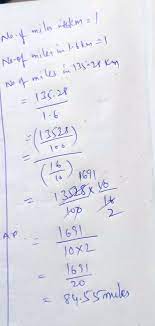 No. of miles in km = 1
No. of miles in 1.6 km = 1
No. of miles in 135.28 km
= 135.28
1.6
= (13528
100)
(16
10)
1691
= 13528 × 10
100 16
2
= 1691
10×2
= 1691
20
= 84.55 miles